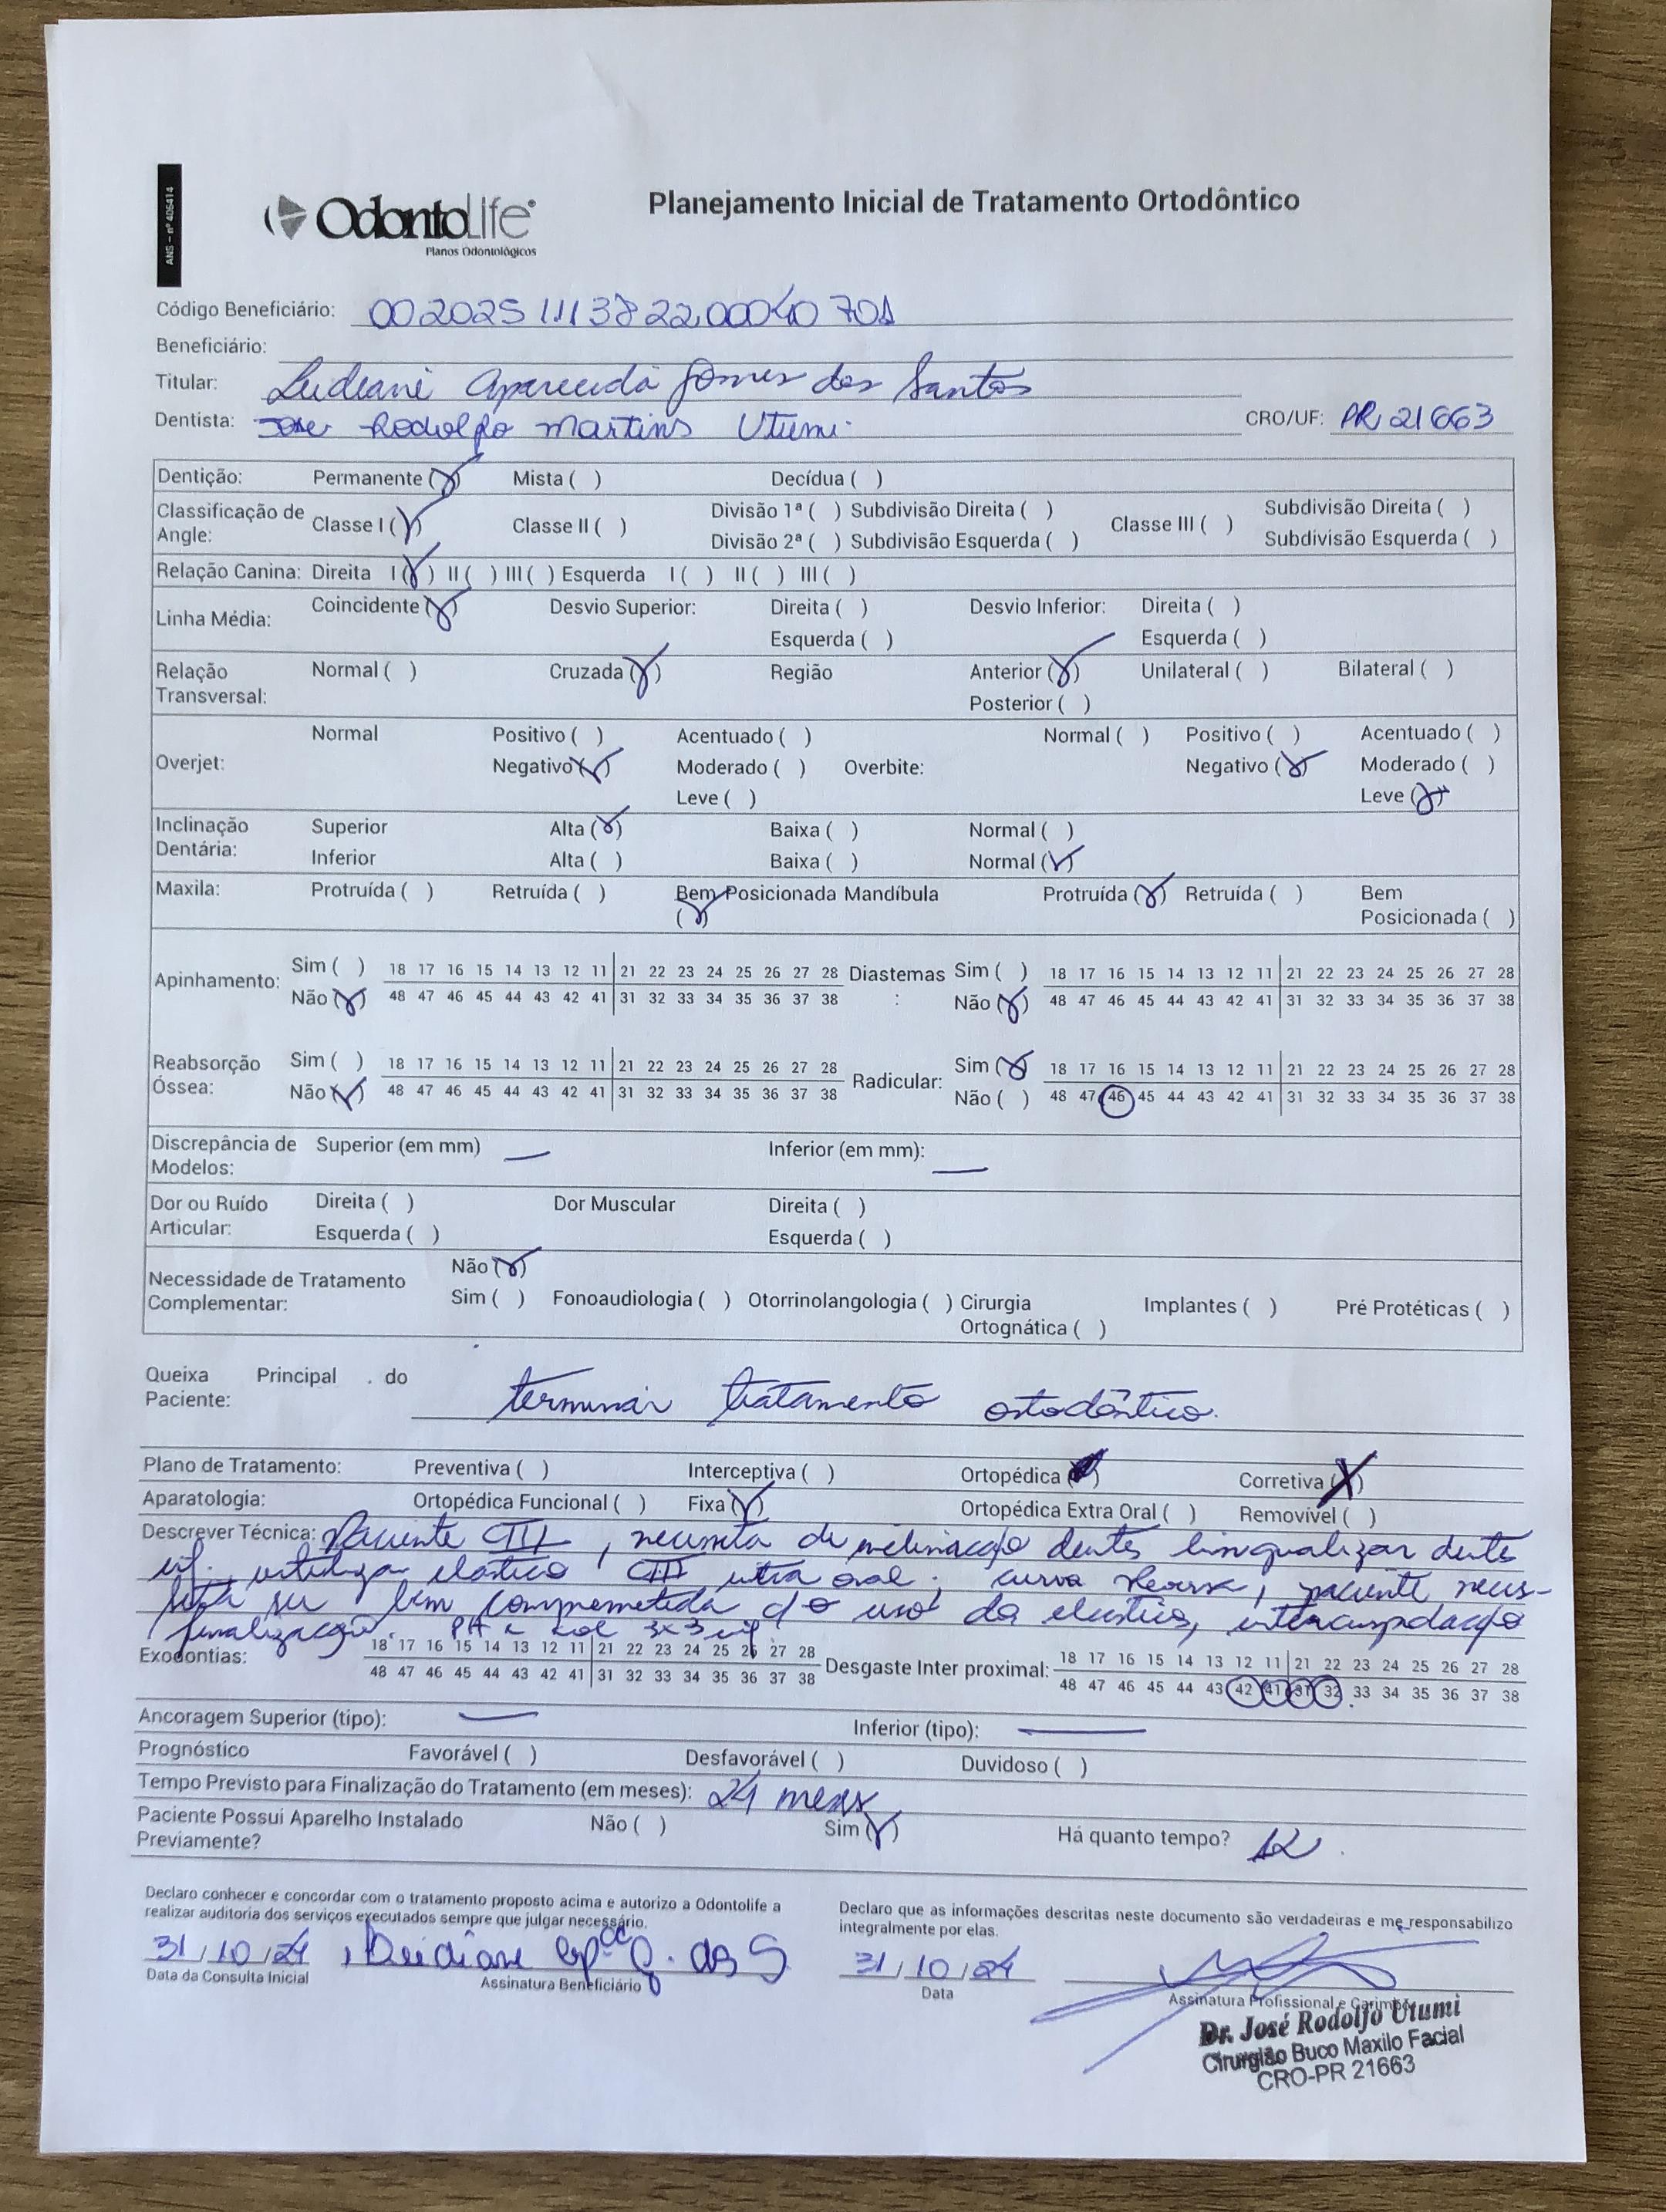 ANS – nº 406414
OdontoLife
Planos Odontológicos
Planejamento Inicial de Tratamento Ortodôntico
Código Beneficiário: 00202511138220004070
Beneficiário:
Titular: Aparecida Gomes dos Santos
Dentista: José Rodolfo Martins Utumi CRO/UF: PR 21663
Dentição: Permanente (X) Mista ( ) Decídua ( )
Classificação de Angle: Classe I (X) Classe II ( ) Divisão 1ª ( ) Subdivisão Direita ( ) Classe III ( ) Subdivisão Direita ( )
Divisão 2ª ( ) Subdivisão Esquerda ( ) Subdivisão Esquerda ( )
Relação Canina: Direita I (X) II ( ) III ( ) Esquerda I ( ) II ( ) III ( )
Linha Média: Coincidente (X) Desvio Superior: Direita ( ) Desvio Inferior: Direita ( )
Esquerda ( ) Esquerda ( )
Relação Transversal: Normal ( ) Cruzada (X) Região Anterior (X) Unilateral ( ) Bilateral ( )
Posterior ( )
Overjet: Normal Positivo ( ) Acentuado ( ) Normal ( ) Positivo ( ) Acentuado ( )
Negativo (X) Moderado ( ) Overbite: Negativo (X) Moderado ( )
Leve ( ) Leve (X)
Inclinação Dentária: Superior Alta (X) Baixa ( ) Normal ( )
Inferior Alta ( ) Baixa ( ) Normal (X)
Maxila: Protruída ( ) Retruída ( ) Bem Posicionada (X) Mandíbula Protruída (X) Retruída ( ) Bem Posicionada ( )
Apinhamento: Sim ( ) 18 17 16 15 14 13 12 11 21 22 23 24 25 26 27 28 Diastemas : Sim ( ) 18 17 16 15 14 13 12 11 21 22 23 24 25 26 27 28
Não (X) 48 47 46 45 44 43 42 41 31 32 33 34 35 36 37 38 Não (X) 48 47 46 45 44 43 42 41 31 32 33 34 35 36 37 38
Reabsorção Óssea: Sim ( ) 18 17 16 15 14 13 12 11 21 22 23 24 25 26 27 28 Radicular: Sim (X) 18 17 16 15 14 13 12 11 21 22 23 24 25 26 27 28
Não (X) 48 47 46 45 44 43 42 41 31 32 33 34 35 36 37 38 Não ( ) 48 47 46 45 44 43 42 41 31 32 33 34 35 36 37 38
Discrepância de Modelos: Superior (em mm) — Inferior (em mm): —
Dor ou Ruído Articular: Direita ( ) Dor Muscular Direita ( )
Esquerda ( ) Esquerda ( )
Necessidade de Tratamento Complementar: Não (X)
Sim ( ) Fonoaudiologia ( ) Otorrinolangologia ( ) Cirurgia Ortognática ( ) Implantes ( ) Pré Protéticas ( )
Queixa Principal do Paciente: terminar tratamento ortodôntico.
Plano de Tratamento: Preventiva ( ) Interceptiva ( ) Ortopédica ( ) Corretiva (X)
Aparatologia: Ortopédica Funcional ( ) Fixa (X) Ortopédica Extra Oral ( ) Removível ( )
Descrever Técnica: Paciente CIII, necessita de inclinação dentes lingualizar dentes
inf., utilizar elástico CIII intra oral, curva reversa, paciente neces-
sita ser bem comprometida c/ o uso do elástico, intercuspidação
finalização. 3x3 inf.
Exodontias: 18 17 16 15 14 13 12 11 21 22 23 24 25 26 27 28 Desgaste Inter proximal: 18 17 16 15 14 13 12 11 21 22 23 24 25 26 27 28
48 47 46 45 44 43 42 41 31 32 33 34 35 36 37 38 48 47 46 45 44 43 42 41 31 32 33 34 35 36 37 38
Ancoragem Superior (tipo): — Inferior (tipo): —
Prognóstico Favorável ( ) Desfavorável ( ) Duvidoso ( )
Tempo Previsto para Finalização do Tratamento (em meses): 24 meses
Paciente Possui Aparelho Instalado Previamente? Não ( ) Sim (X) Há quanto tempo? 12
Declaro conhecer e concordar com o tratamento proposto acima e autorizo a Odontolife a
realizar auditoria dos serviços executados sempre que julgar necessário.
Declaro que as informações descritas neste documento são verdadeiras e me responsabilizo
integralmente por elas.
31/10/24 G. dos S 31/10/24
Data da Consulta Inicial Assinatura Beneficiário Data Assinatura Profissional e Carimbo
Dr. José Rodolfo Utumi
Cirurgião Buco Maxilo Facial
CRO-PR 21663